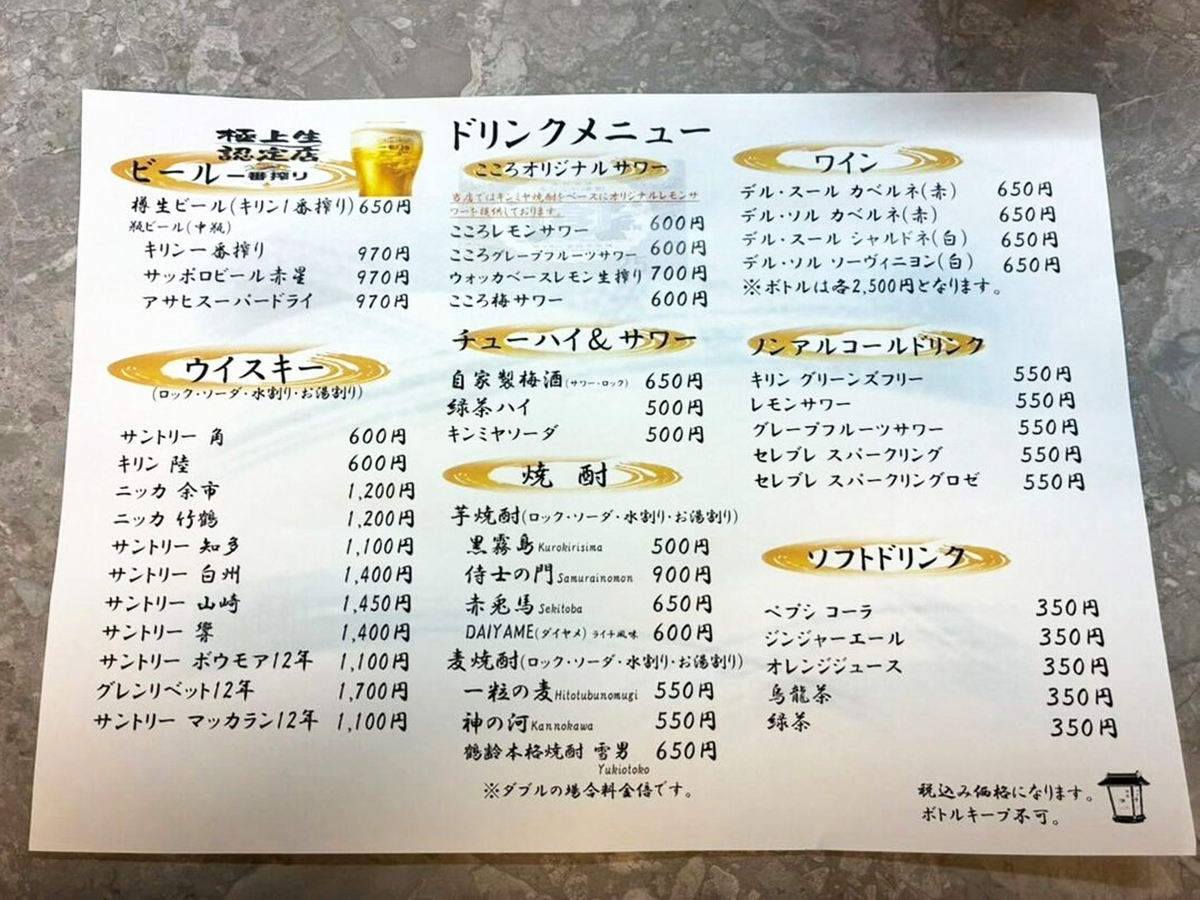 ドリンクメニュー
極上生
認定店
ビール 一番搾り
樽生ビール(キリン1番搾り) 650円
瓶ビール(中瓶)
キリン一番搾り 970円
サッポロビール赤星 970円
アサヒスーパードライ 970円
ウイスキー
(ロック・ソーダ・水割り・お湯割り)
サントリー 角 600円
キリン 陸 600円
ニッカ 余市 1,200円
ニッカ 竹鶴 1,200円
サントリー 知多 1,100円
サントリー 白州 1,400円
サントリー 山崎 1,450円
サントリー 響 1,400円
サントリー ボウモア12年 1,100円
グレンリベット12年 1,700円
サントリー マッカラン12年 1,100円
こころオリジナルサワー
当店ではキンミヤ焼酎をベースにオリジナルレモンサ
ワーを提供しております。
こころレモンサワー 600円
こころグレープフルーツサワー 600円
ウォッカベースレモン生搾り 700円
こころ梅サワー 600円
チューハイ&サワー
自家製梅酒(サワー・ロック) 650円
緑茶ハイ 500円
キンミヤソーダ 500円
焼酎
芋焼酎(ロック・ソーダ・水割り・お湯割り)
黒霧島 Kurokirisima 500円
侍士の門 Samurainomon 900円
赤兎馬 Sekitoba 650円
DAIYAME(ダイヤメ) ライチ風味 600円
麦焼酎(ロック・ソーダ・水割り・お湯割り)
一粒の麦 Hitotubunomugi 550円
神の河 Kannokawa 550円
鶴齢本格焼酎 雪男 650円
Yukiotoko
※ダブルの場合料金倍です。
ワイン
デル・スール カベルネ(赤) 650円
デル・ソル カベルネ(赤) 650円
デル・スール シャルドネ(白) 650円
デル・ソル ソーヴィニヨン(白) 650円
※ボトルは各2,500円となります。
ノンアルコールドリンク
キリン グリーンズフリー 550円
レモンサワー 550円
グレープフルーツサワー 550円
セレブレ スパークリング 550円
セレブレ スパークリングロゼ 550円
ソフトドリンク
ペプシ コーラ 350円
ジンジャーエール 350円
オレンジジュース 350円
烏龍茶 350円
緑茶 350円
税込み価格になります。
ボトルキープ不可。